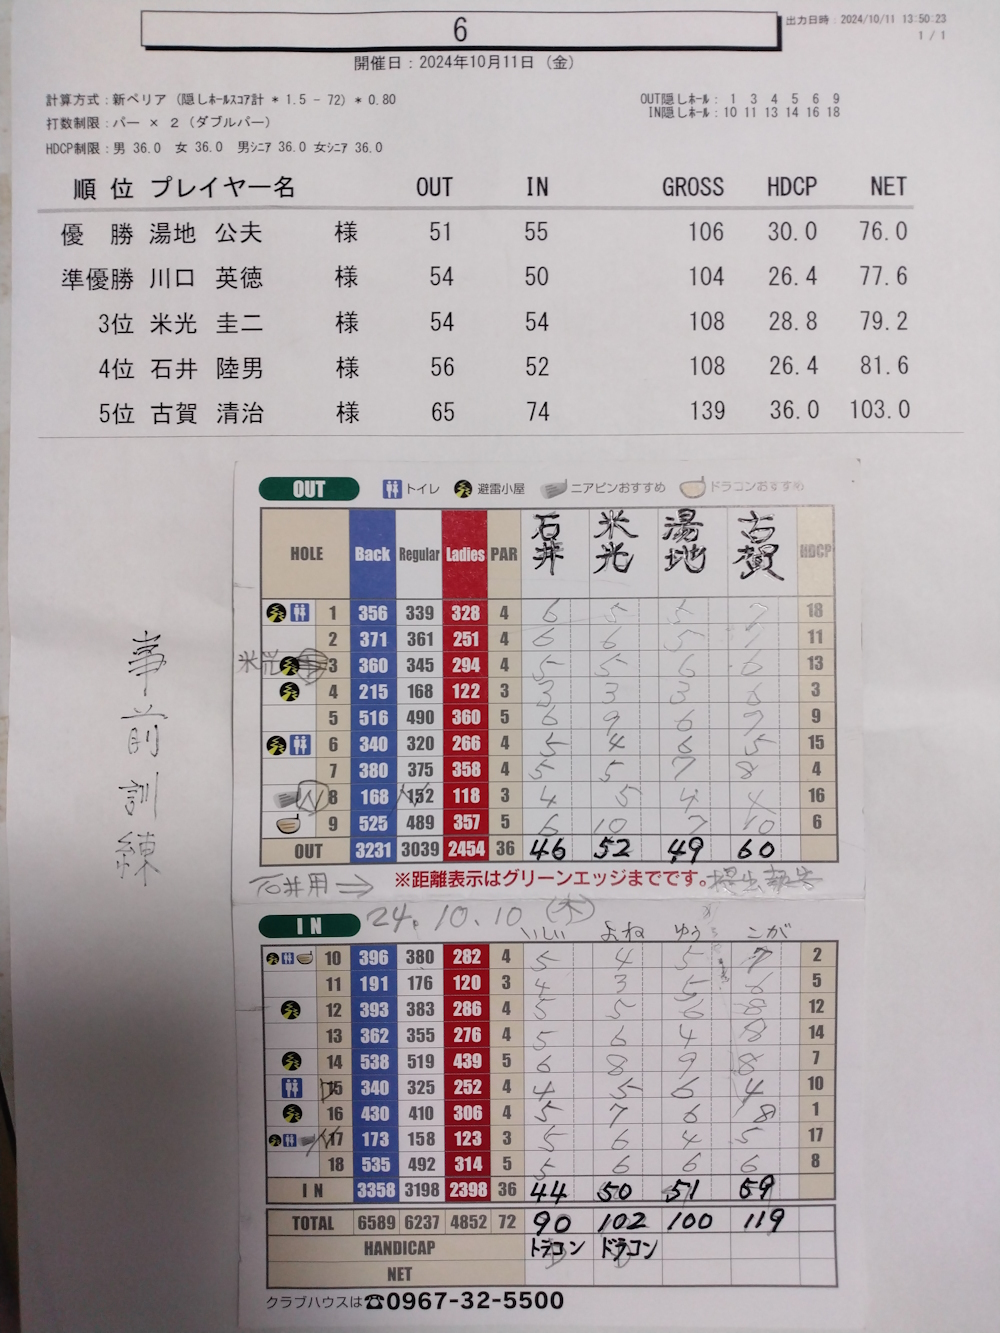 6
出力日時：2024/10/11 13:50:23
1 / 1
開催日：2024年10月11日（金）
計算方式：新ペリア（隠しﾎｰﾙｽｺｱ計 * 1.5 - 72）* 0.80
OUT隠しﾎｰﾙ： 1 3 4 5 6 9
打数制限：パー × 2（ダブルパー）
IN隠しﾎｰﾙ：10 11 13 14 16 18
HDCP制限：男 36.0 女 36.0 男ｼﾆｱ 36.0 女ｼﾆｱ 36.0
順位 プレイヤー名 OUT IN GROSS HDCP NET
優勝 湯地 公夫 様 51 55 106 30.0 76.0
準優勝 川口 英徳 様 54 50 104 26.4 77.6
3位 米光 圭二 様 54 54 108 28.8 79.2
4位 石井 陸男 様 56 52 108 26.4 81.6
5位 古賀 清治 様 65 74 139 36.0 103.0
事前訓練
OUT トイレ 避雷小屋 ニアピンおすすめ ドラコンおすすめ
HOLE Back Regular Ladies PAR 石井 米光 湯地 古賀 HDCP
1 356 339 328 4 6 5 5 7 18
2 371 361 251 4 6 6 5 7 11
米光 3 360 345 294 4 5 5 6 6 13
4 215 168 122 3 3 3 3 6 3
5 516 490 360 5 6 9 6 7 9
6 340 320 266 4 5 4 6 5 15
7 380 375 358 4 5 5 7 8 4
N 8 168 152 118 3 4 5 4 4 16
9 525 489 357 5 6 10 7 10 6
OUT 3231 3039 2454 36 46 52 49 60
石井用 ⇒ ※距離表示はグリーンエッジまでです。
IN 24.10.10 (木)
いしい よね ゆう こが
10 396 380 282 4 5 4 5 7 2
11 191 176 120 3 4 3 5 6 5
12 393 383 286 4 5 5 6 8 12
13 362 355 276 4 5 6 4 8 14
14 538 519 439 5 6 8 9 8 7
15 340 325 252 4 4 5 6 4 10
16 430 410 306 4 5 7 6 8 1
N 17 173 158 123 3 5 6 4 5 17
18 535 492 314 5 5 6 6 6 8
IN 3358 3198 2398 36 44 50 51 59
TOTAL 6589 6237 4852 72 90 102 100 119
HANDICAP ドラコン ドラコン
NET
クラブハウスは☎0967-32-5500